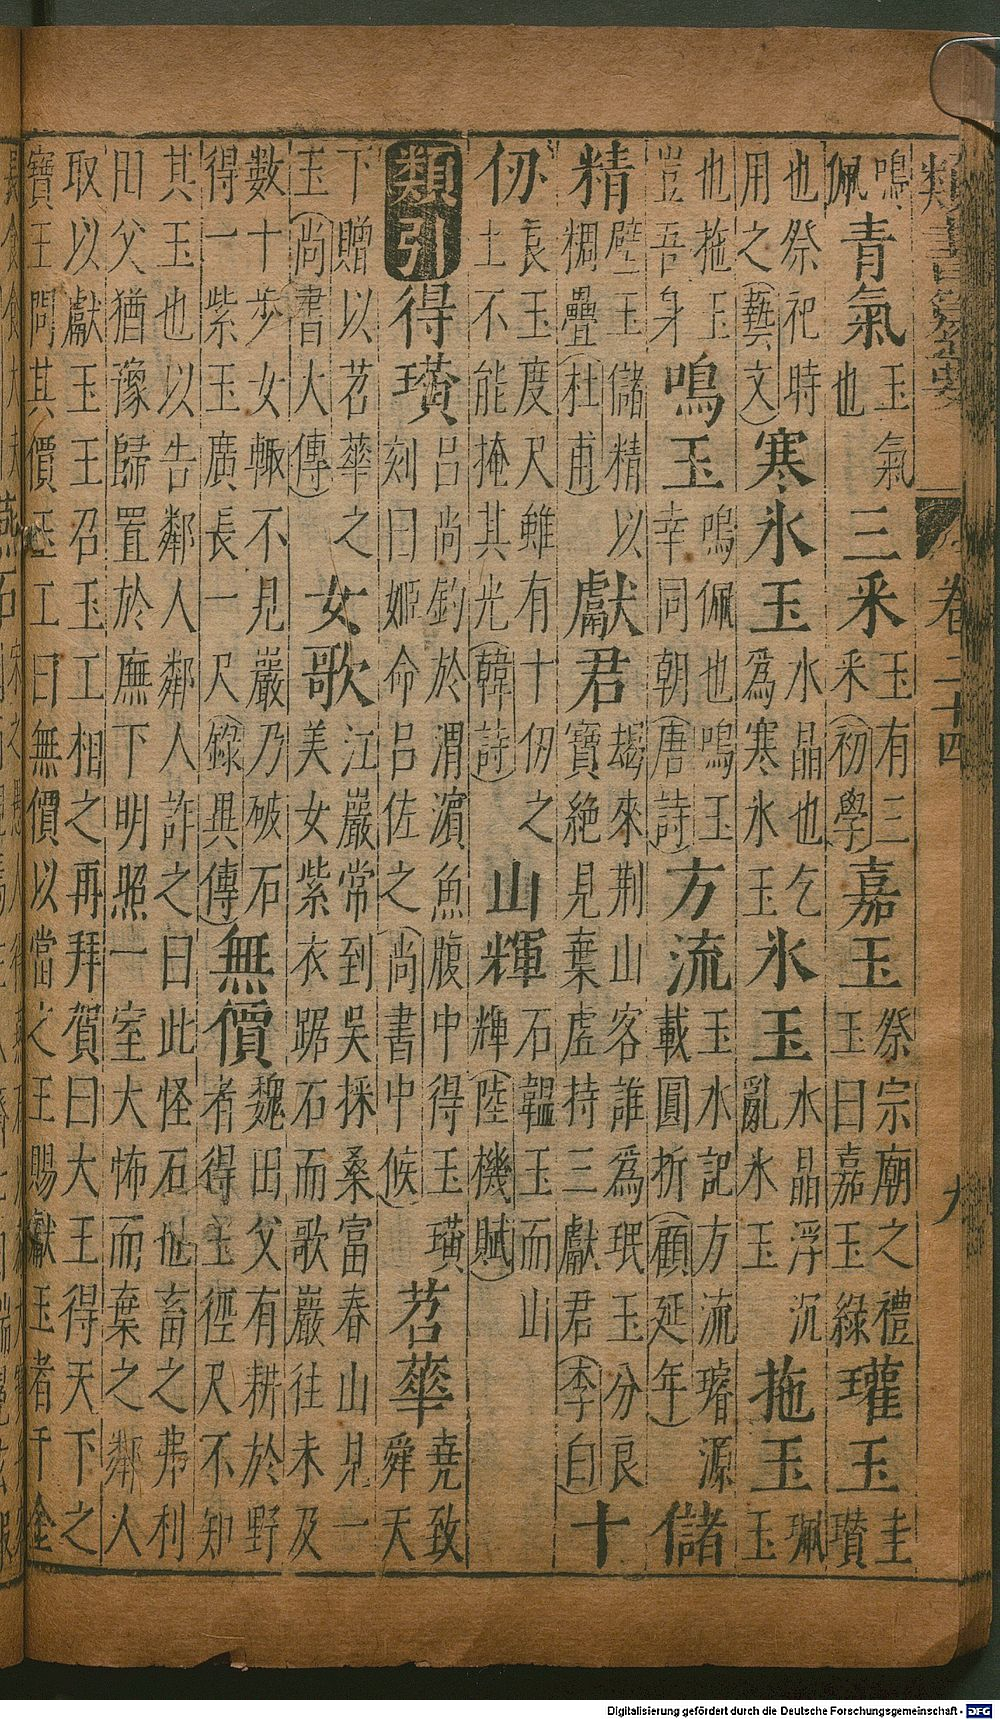 類書纂要 卷二十四 九
鳴佩青氣玉氣也三采玉有三采(初學)嘉玉祭宗廟之禮玉曰嘉玉綠瓘玉圭瓚
也祭祀時用之(藝文)寒氷玉水晶也乞爲寒氷玉氷玉水晶浮沉亂氷玉拖玉珮玉
也拖玉豈吾身鳴玉鳴佩也鳴玉幸同朝(唐詩)方流玉水記方流璿源載圓折(顧延年)儲
精壁玉儲精以稠疊(杜甫)獻君朅來荆山客誰爲珉玉分良寶絕見棄虛持三獻君(李白)十
仞良玉度尺雖有十仞之土不能掩其光(韓詩)山輝石韞玉而山輝(陸機賦)
類引得璜吕尚釣於渭濵魚腹中得玉璜刻曰姬命吕佐之(尚書中候)苕華堯致舜天
下贈以苕華之玉(尚書大傳)女歌江嚴常到吳採桑富春山見一美女紫衣踞石而歌嚴往未及
數十步女輙不見嚴乃破石得一紫玉廣長一尺(錄異傳)無價魏田父有耕於野者得玉徑尺不知
其玉也以告鄰人鄰人詐之曰此怪石也畜之弗利
田父猶豫歸置於廡下明照一室大怖而棄之鄰人
取以獻玉王召玉工相之再拜賀曰大王得天下之
寳王問其價玉工曰無價以當之王賜獻玉者千金
Digitalisierung gefördert durch die Deutsche Forschungsgemeinschaft - DFG